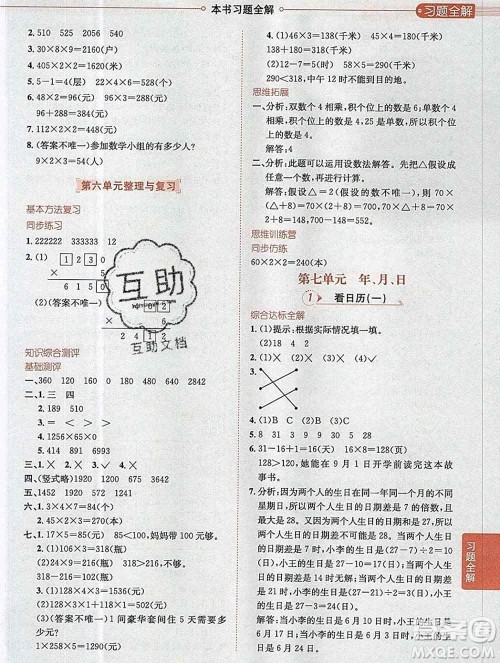 本书习题全解
习题全解
2. 510 525 520 540
3. 30×8×9=2160(户)
4. 405×2×2=1620(米)
5. 22×6×4=528(个)
6. 48×2=96(元)
96+288=384(元)
7. 112×3×2=672(元)
8. (答案不唯一)参加数学小组的有多少人?
9×2×3=54(人)
第六单元整理与复习
基本方法复习
同步练习
1. 222222 333333 12
2. (1) 1 2 3 0
× 5
6 1 5 0
(2)(答案不唯一)
4 0 2
× 6
2 4 1 2
互助
互助文档
知识综合测评
基础测评
一、360 120 160 0 320 1000
二、1. 三 四
2. 450 9
3. 1518 0 819
4. 1256×65×0
5. 290×4=1160
三、√ × √ × ×
四、(竖式略)1920 1200 675 1920
五、1452 1520 3294 640
六、1. 3×4×7=84(个)
2. 45×2×3=270(本)
七、1. 17×5=85(元) 85<100,妈妈带100元够。
2. (1)36×3=108(瓶)
(2)(答案不唯一)
36×3+200=308(瓶)
3. (1)122×5=610(元)
(2)(答案不唯一)1间豪华套间住5天需要多少元?
1×258×5=1290(元)
4. (1)50×2=100(米) 180×1=180(米)
100+180=280(米)
(2)(12-7)×58=290(千米)
290<318,中午12时不能到目的地。
思维拓展
一、分析:双数个4相乘,积个位上的数是6;单数个4相乘,积个位上的数是4,25是单数,所以积个位上的数是4。
解答:4
二、分析:此题可以运用设数法解答。假设□是1,然后再计算。
解答:因为(70+1)×4=284,70+1×4=74,284-74=210,所以得到的结果比正确结果小,小了210。
思维训练营
同步仿练
60×2×2=240(本)
第七单元 年、月、日
1 看日历(一)
综合达标全解
1. (1)提示:根据实际情况填一填。
(2)7 4 28 365
2. × √ × × ×
3.
4. 5 8 31 9 30 28 29 366
5. 8 31 16
6. 31-16+1=16(天) 16×8=128(页)
128>120,她能在9月1日开学前读完这本故事书。
7. 分析:因为两个人的生日在同一年同一个月的不同星期的同一天,所以两个人的生日的日期相差7天或14天或21天或28天。当两个人的生日的日期差是7时,小李的生日是(27-7)÷2=10(日),小王的生日是10+7=17(日);当两个人的生日的日期差是14时,(27-14)÷2=6(日)……1(日),不成立;当两个人的生日的日期差是21时,小李的生日是(27-21)÷2=3(日),小王的生日是3+21=24(日);当两个人的生日的日期差是28时,因为28>27,所以不成立。综上所述,小李的生日是6月10日,小王的生日是6月17日;或者小李的生日是6月3日,小王的生日是6月24日。
习题全解
答案圈
MXQE.COM